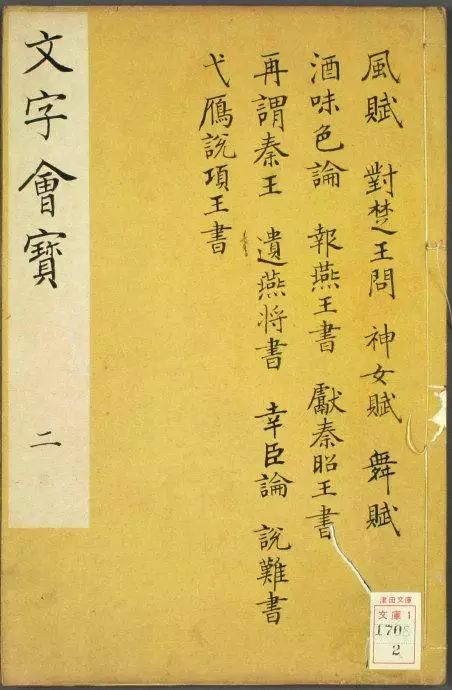 文字會寶
二
風賦 對楚王問 神女賦 舞賦
酒味色論 報燕王書 獻秦昭王書
再謂秦王 遺燕将書 幸臣論 說難書
弋鴈說項王書
津田文庫
文庫1
1705
2